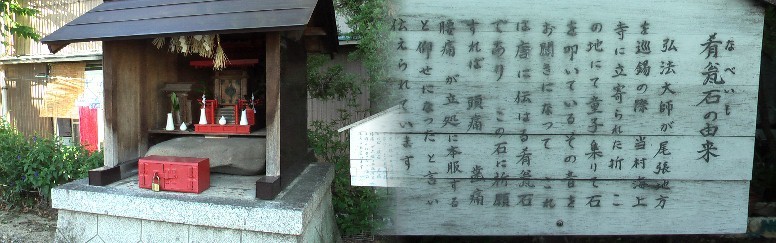 肴瓮石の由来
なべいし
弘法大師が尾張地方
を巡錫の際 当村海上
寺に立寄られた折 こ
の地にて童子集りて石
を叩いているその音を
お聞きになって これ
は唐に伝はる肴瓮石
であり この石に祈願
すれば 頭痛 歯痛
腰痛 が立処に本服する
と御せになった と言い
伝えられています